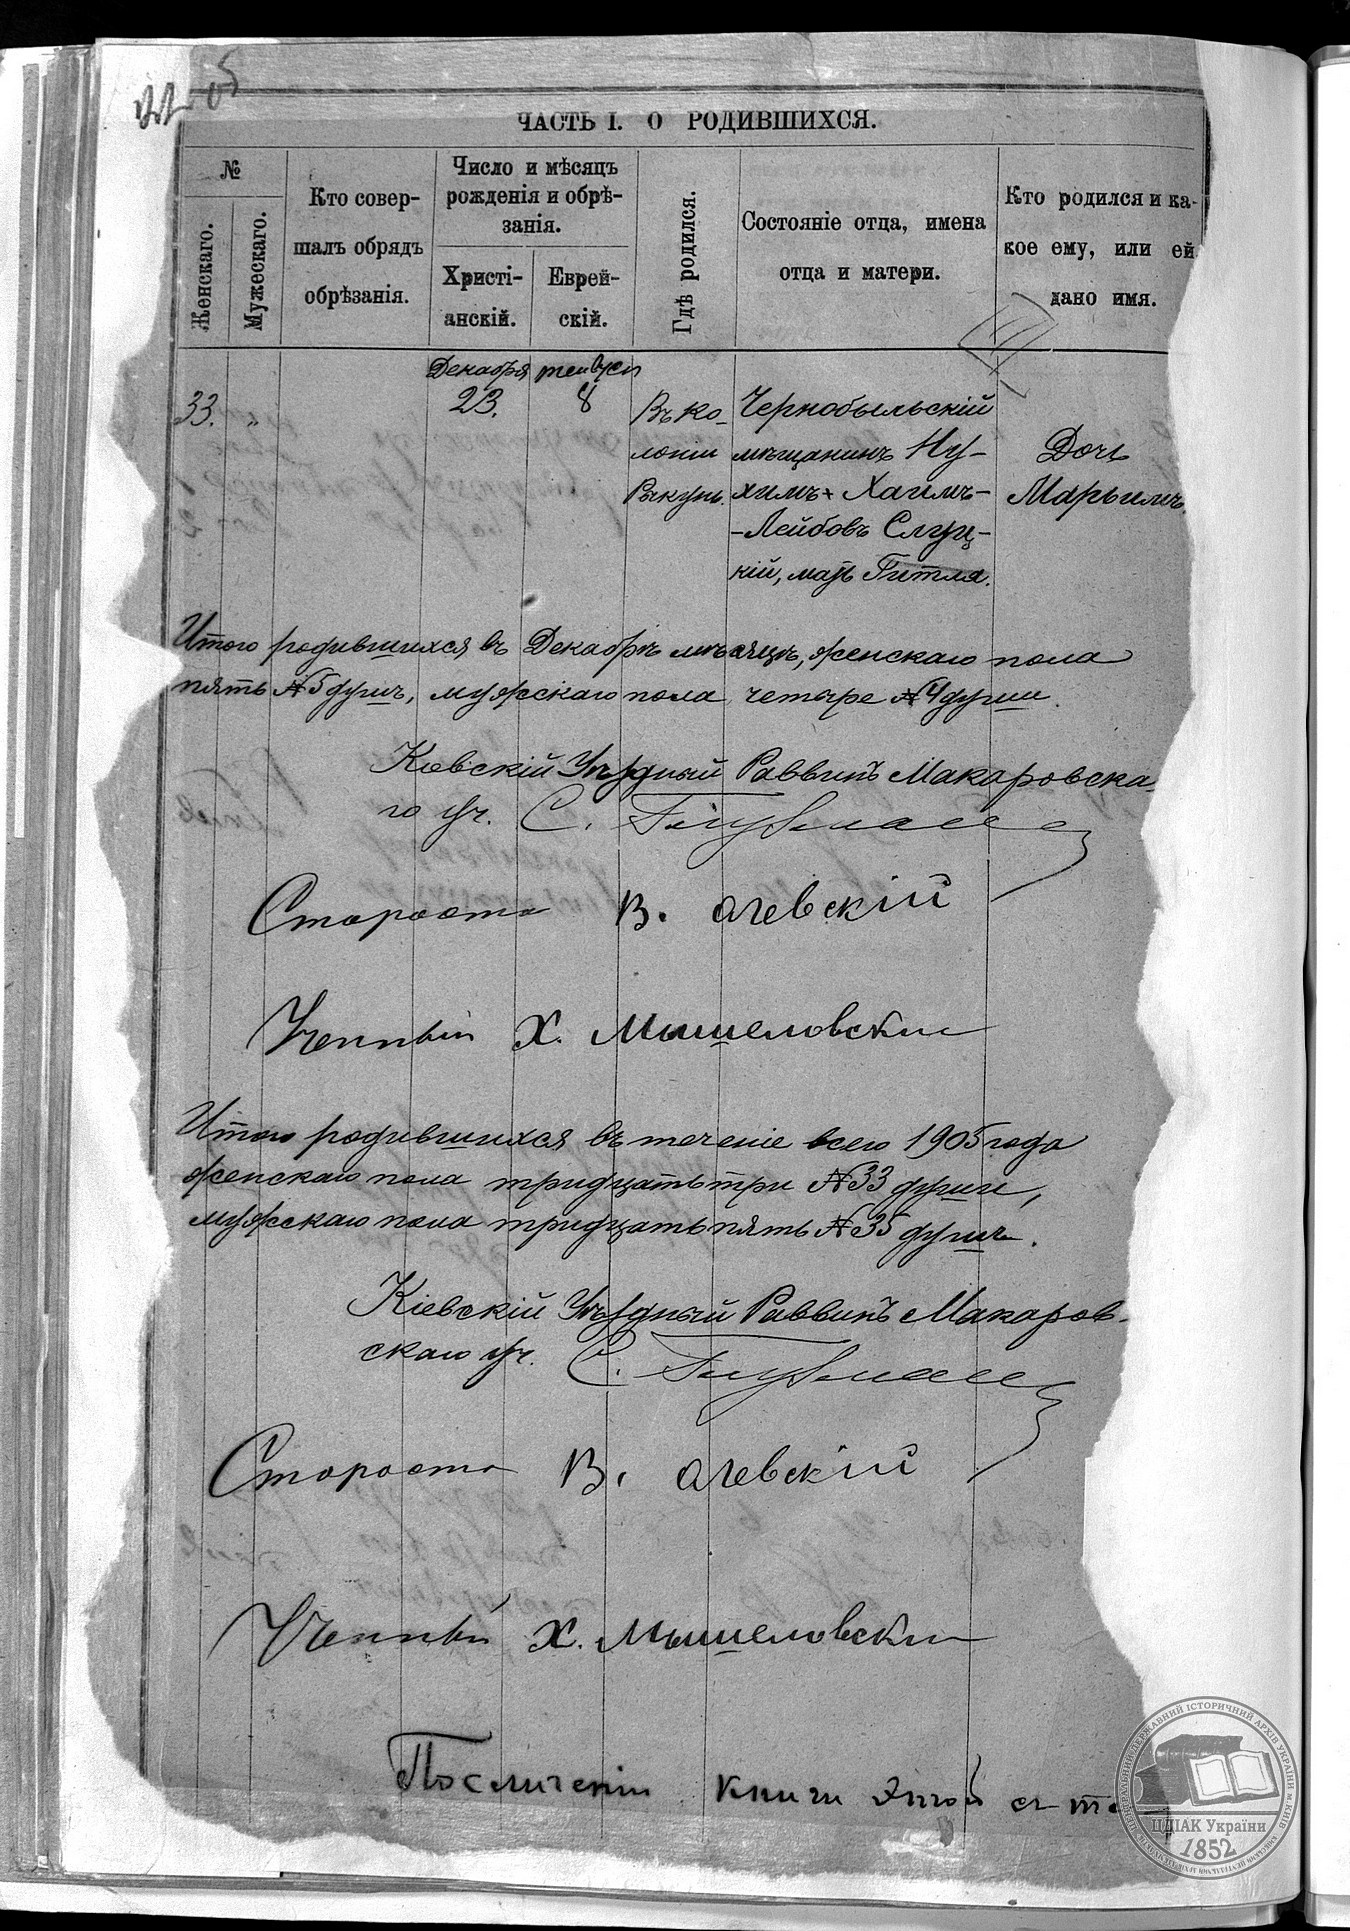 ЧАСТЬ I. О РОДИВШИХСЯ.
№
Женскаго.
Мужескаго.
Кто совер-
шалъ обрядъ
обрѣзанія.
Число и мѣсяцъ
рожденія и обрѣ-
занія.
Христі-
анскій.
Еврей-
скій.
Гдѣ родился.
Состояніе отца, имена
отца и матери.
Кто родился и ка-
кое ему, или ей
дано имя.
33.
„
Декабря
23.
8
Въ ко-
лоніи
Ракунь.
Чернобыльскій
мѣщанинъ Ну-
химъ Хаимъ-
-Лейбовъ Слуц-
кій, мать Гитля.
Дочь
Марьимъ.
Итого родившихся въ Декабрѣ мѣсяцѣ, женскаго пола
пять №5 душъ, мужскаго пола четыре №4 души.
Кіевскій Уѣздный Раввинъ Макаровска-
го уч. С.
Староста В.
Ученный Х. Мышеловскій
Итого родившихся въ теченіе всего 1905 года
женскаго пола тридцать три №33 души,
мужскаго пола тридцать пять №35 душъ.
Кіевскій Уѣздный Раввинъ Макаров-
скаго уч. С.
Староста В.
Ученный Х. Мышеловскій
По сличеніи книги этой съ
ЦЕНТРАЛЬНИЙ ДЕРЖАВНИЙ ІСТОРИЧНИЙ АРХІВ УКРАЇНИ м.КИЇВ
ЦДІАК України
1852